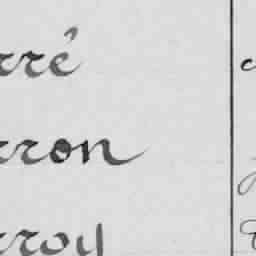 rré
rron
rroy